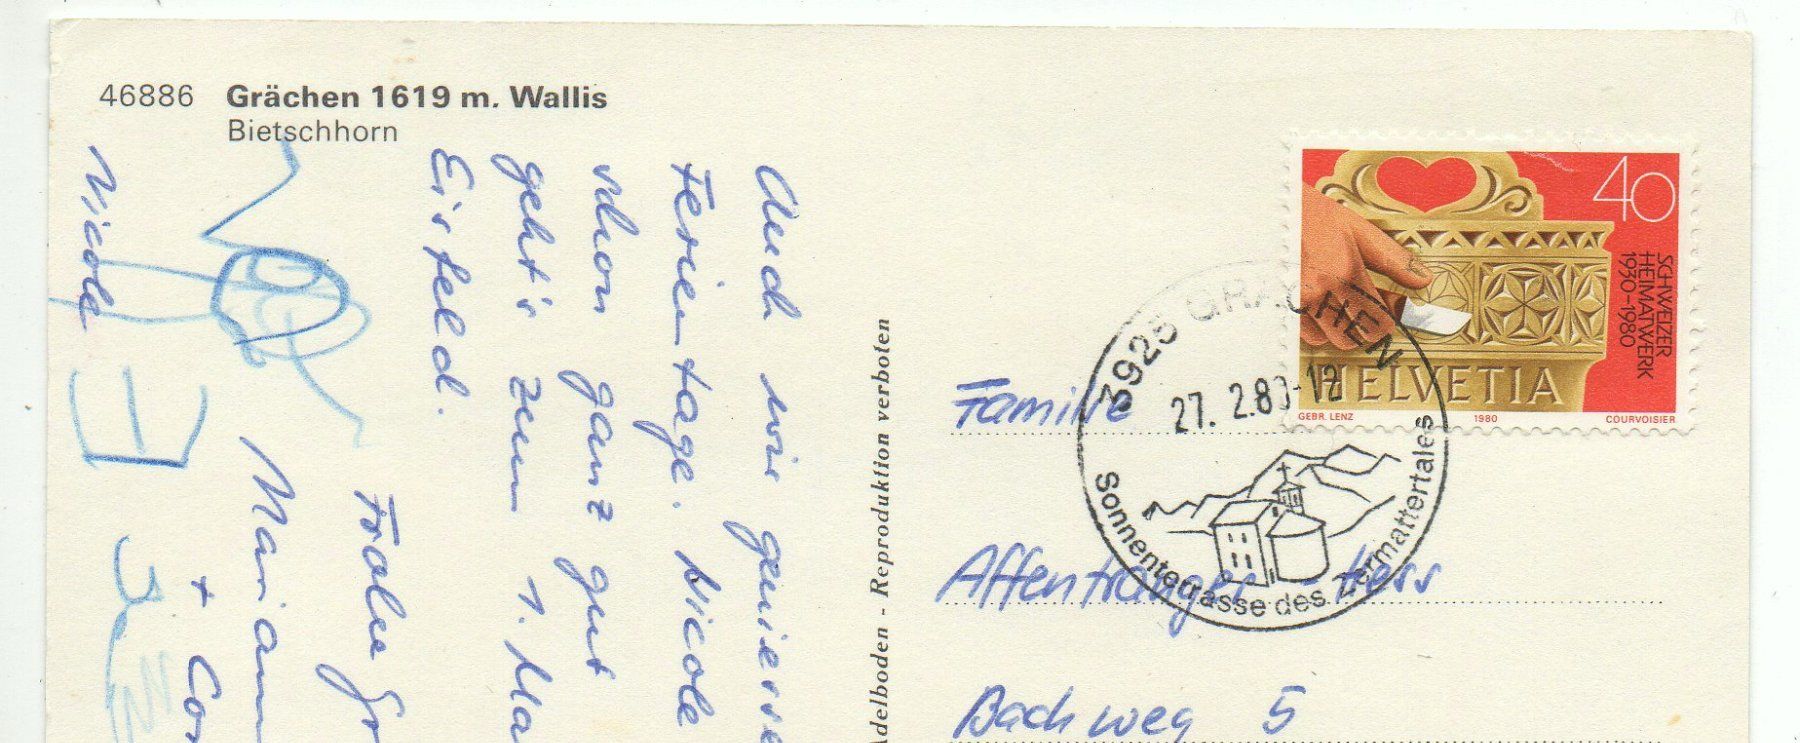 46886 Grächen 1619 m. Wallis
Bietschhorn
Auch wir
Ferientage. Nicole
schon ganz gut
geht's zum 1. Ma
Eisfeld.
Frohe Gr
Mariann
+ Cor
Nicole
Adelboden - Reproduktion verboten
40
SCHWEIZER
HEIMATWERK
1930-1980
HELVETIA
GEBR. LENZ 1980 COURVOISIER
3925 GRÄCHEN
27. 2.8 -12
Sonnenterrasse des Zermattertales
Familie
Affentranger - Hess
Bachweg 5